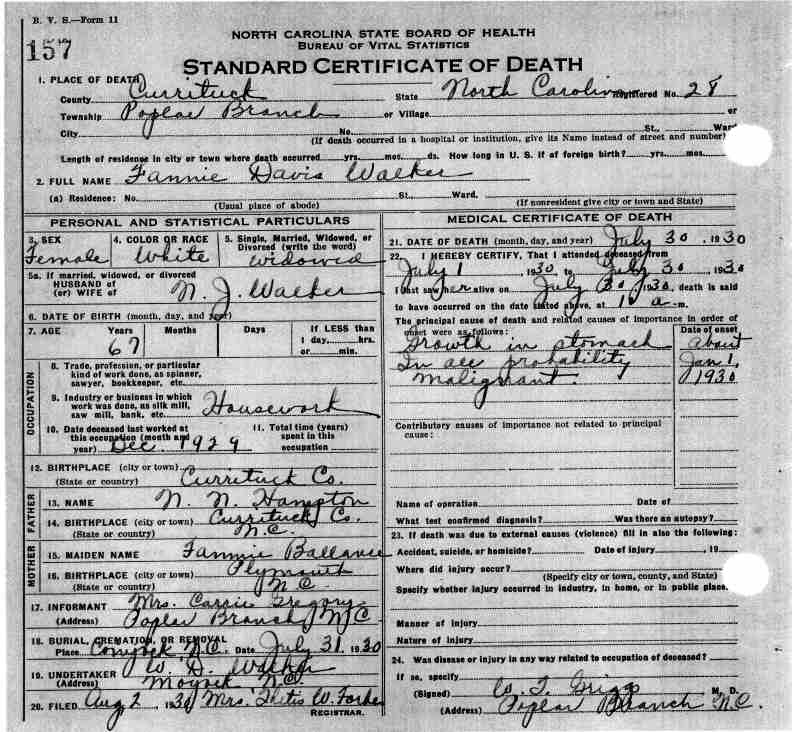 B. V. S.—Form 11
157
NORTH CAROLINA STATE BOARD OF HEALTH
BUREAU OF VITAL STATISTICS
STANDARD CERTIFICATE OF DEATH
1. PLACE OF DEATH
County Currituck State North Carolina Registered No. 28
Township Poplar Branch or Village or
City No. St., Ward
(If death occurred in a hospital or institution, give its Name instead of street and number)
Length of residence in city or town where death occurred yrs. mos. ds. How long in U. S. if of foreign birth? yrs. mos.
2. FULL NAME Fannie Davis Walker
(a) Residence: No. St. Ward.
(Usual place of abode) (If nonresident give city or town and State)
PERSONAL AND STATISTICAL PARTICULARS
3. SEX 4. COLOR OR RACE 5. Single, Married, Widowed, or Divorced (write the word)
Female White widowed
5a. If married, widowed, or divorced
HUSBAND of
(or) WIFE of N. J. Walker
6. DATE OF BIRTH (month, day, and year)
7. AGE Years Months Days If LESS than
1 day, hrs.
or min.
67
OCCUPATION
8. Trade, profession, or particular
kind of work done, as spinner,
sawyer, bookkeeper, etc.
9. Industry or business in which
work was done, as silk mill,
saw mill, bank, etc. Housework
10. Date deceased last worked at
this occupation (month and
year) Dec. 1929
11. Total time (years)
spent in this
occupation
12. BIRTHPLACE (city or town)
(State or country) Currituck Co.
FATHER
13. NAME N. N. Hampton
14. BIRTHPLACE (city or town) Currituck Co.
(State or country) N.C.
MOTHER
15. MAIDEN NAME Fannie Ballance
16. BIRTHPLACE (city or town) Plymouth
(State or country) N.C.
17. INFORMANT Mrs. Carrie Gregory
(Address) Poplar Branch, N.C.
18. BURIAL, CREMATION, OR REMOVAL
Place N.C. Date July 31, 1930
19. UNDERTAKER W. D. Walker
(Address) Moyock, N.C.
20. FILED Aug 2, 1930 Mrs. W. Forbes
REGISTRAR.
MEDICAL CERTIFICATE OF DEATH
21. DATE OF DEATH (month, day, and year) July 30, 1930
22. I HEREBY CERTIFY, That I attended deceased from
July 1, 1930, to July 30, 1930
I last saw her alive on July 30, 1930, death is said
to have occurred on the date stated above, at 1 a m.
The principal cause of death and related causes of importance in order of
onset were as follows: Date of onset
Growth in stomach about
In all probability Jan 1,
malignant. 1930
Contributory causes of importance not related to principal
cause:
Name of operation Date of
What test confirmed diagnosis? Was there an autopsy?
23. If death was due to external causes (violence) fill in also the following:
Accident, suicide, or homicide? Date of injury , 19
Where did injury occur?
(Specify city or town, county, and State)
Specify whether injury occurred in industry, in home, or in public place.
Manner of injury
Nature of injury
24. Was disease or injury in any way related to occupation of deceased?
If so, specify
(Signed) W. T. Grigg M. D.
(Address) Poplar Branch N.C.